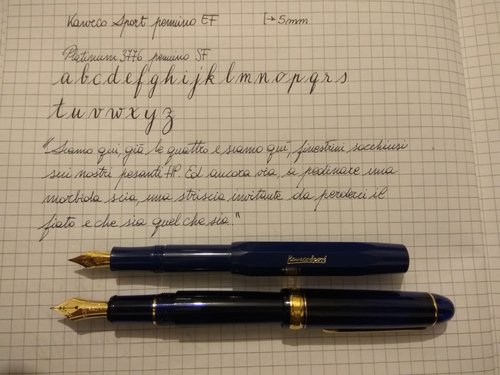 Kaweco Sport pennino EF
5mm
Platinum 3776 pennino SF
a b c d e f g h i j k l m n o p q r s
t u v w x y z
"Siamo qui, già le quattro e siamo qui, finestrini socchiusi
sui nostri pesanti HP. Ed ancora via, a pedinare una
morbida scia, una striscia invitante da perderci il
fiato e che sia quel che sia."
Kaweco Sport